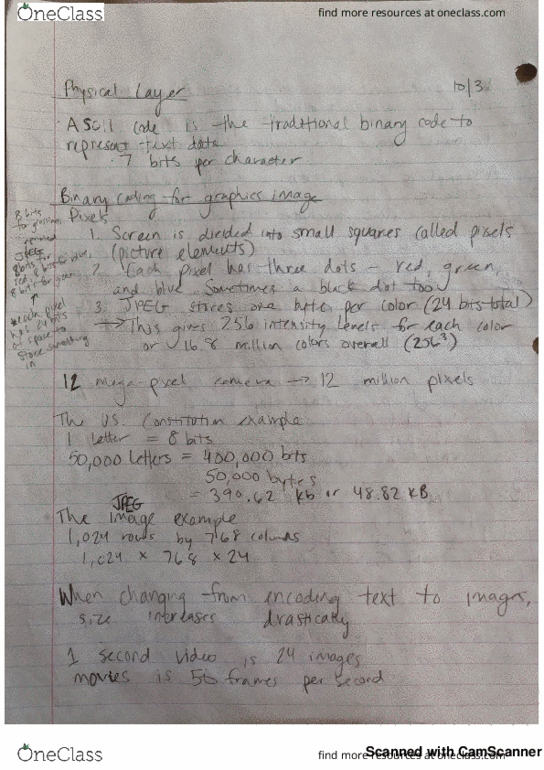 OneClass
find more resources at oneclass.com
Physical Layer
10/3
ASCII code is the traditional binary code to
represent text data
· 7 bits per character
Binary coding for graphics image
Pixels
1. Screen is divided into small squares called pixels
(picture elements)
2. Each pixel has three dots – red, green,
and blue. Sometimes a black dot too
3. JPEG stores one byte per color (24 bits total)
→ This gives 256 intensity levels for each color
or 16.8 million colors overall (256³)
8 bits
for
JPEG
8 bits for
red, 8 bits blue,
8 bits for green
↑
*each pixel
has 24 bits
of space to
store something
in
12 mega-pixel camera → 12 million pixels
The US. Constitution example
1 letter = 8 bits
50,000 letters = 400,000 bits
50,000 bytes
= 390.62 kb or 48.82 KB
JPEG
The image example
1,024 rows by 768 columns
1,024 × 768 × 24
When changing from encoding text to images,
size increases drastically
1 second video is 24 images
movies is 56 frames per second
OneClass
find more resources at oneclass.com
Scanned with CamScanner